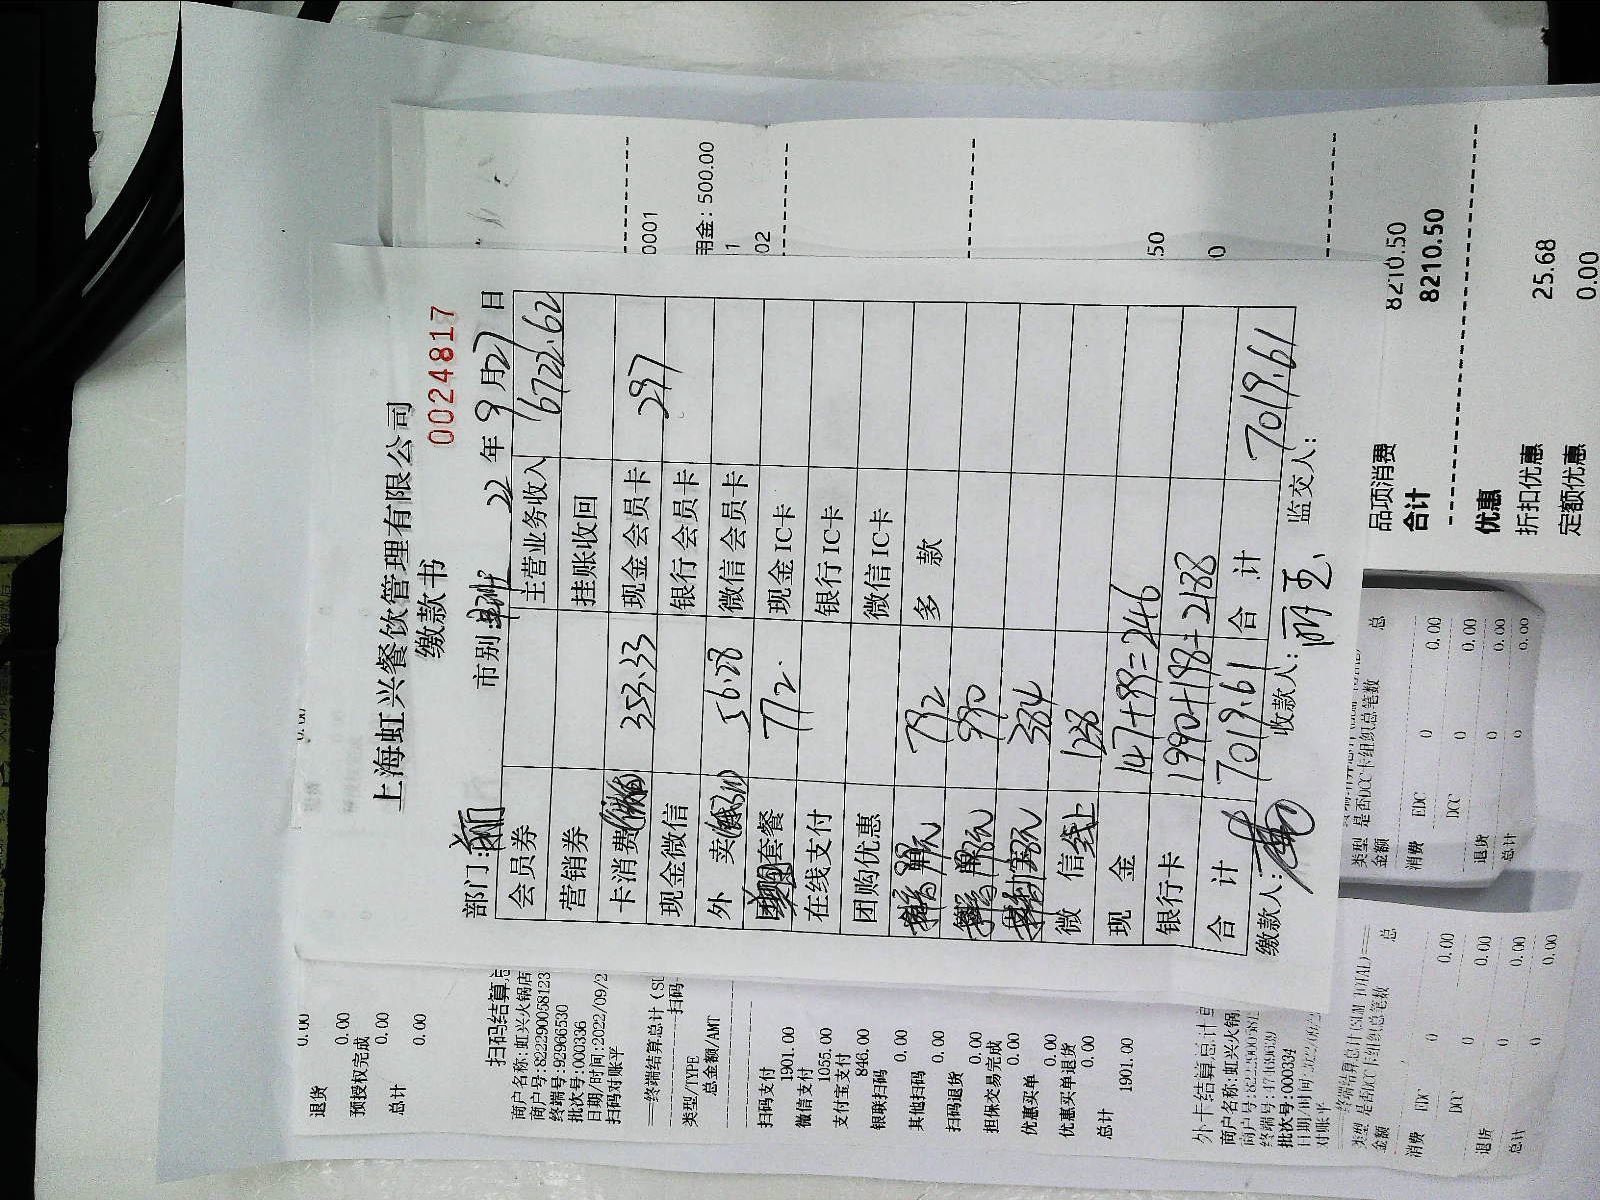 上海虹兴餐饮管理有限公司
缴款书
00024817
部门:
市别:
22 年 9 月 27 日
会员券
主营业务收入 6722.62
营销券
挂账收回
卡消费 353.33
现金会员卡 297
现金微信
银行会员卡
外 卖 56.28
微信会员卡
套餐 772.
现金IC卡
在线支付
银行IC卡
团购优惠
微信IC卡
792
多 款
990
384
微 信 线上 128
现 金 147+99=246
银行卡 1990+198=2188
合 计 7019.61
合 计 7019.61
缴款人:
收款人: 丽玉
监交人:
0001
用金: 500.00
1
02
50
0
品项消费 8210.50
合计 8210.50
优惠
折扣优惠 25.68
定额优惠 0.00
0.00
退货
0.00
预授权完成
0.00
总计
0.00
扫码结算总
商户名称:虹兴火锅店
商户号:822290058123
终端号:92966530
批次号:000336
日期/时间:2022/09/2
扫码对账平
终端结算总计(SU
扫码
类型/TYPE
总金额/AMT
扫码支付
1901.00
微信支付
1055.00
支付宝支付
846.00
银联扫码
0.00
其他扫码
0.00
扫码退货
0.00
担保交易完成
0.00
优惠买单
0.00
优惠买单退货
0.00
总计
1901.00
外卡结算总计单
商户名称:虹兴火锅
批次号:000334
对账平
终端结算总计(SUM TOTAL)
类型 是否DCC卡组织总笔数 总
金额
消费 EDC 0 0.00
DCC 0 0.00
退货 0 0.00
总计 0 0.00
类型 是否DCC卡组织总笔数 总
金额
消费 EDC 0 0.00
DCC 0 0.00
退货 0 0.00
总计 0 0.00